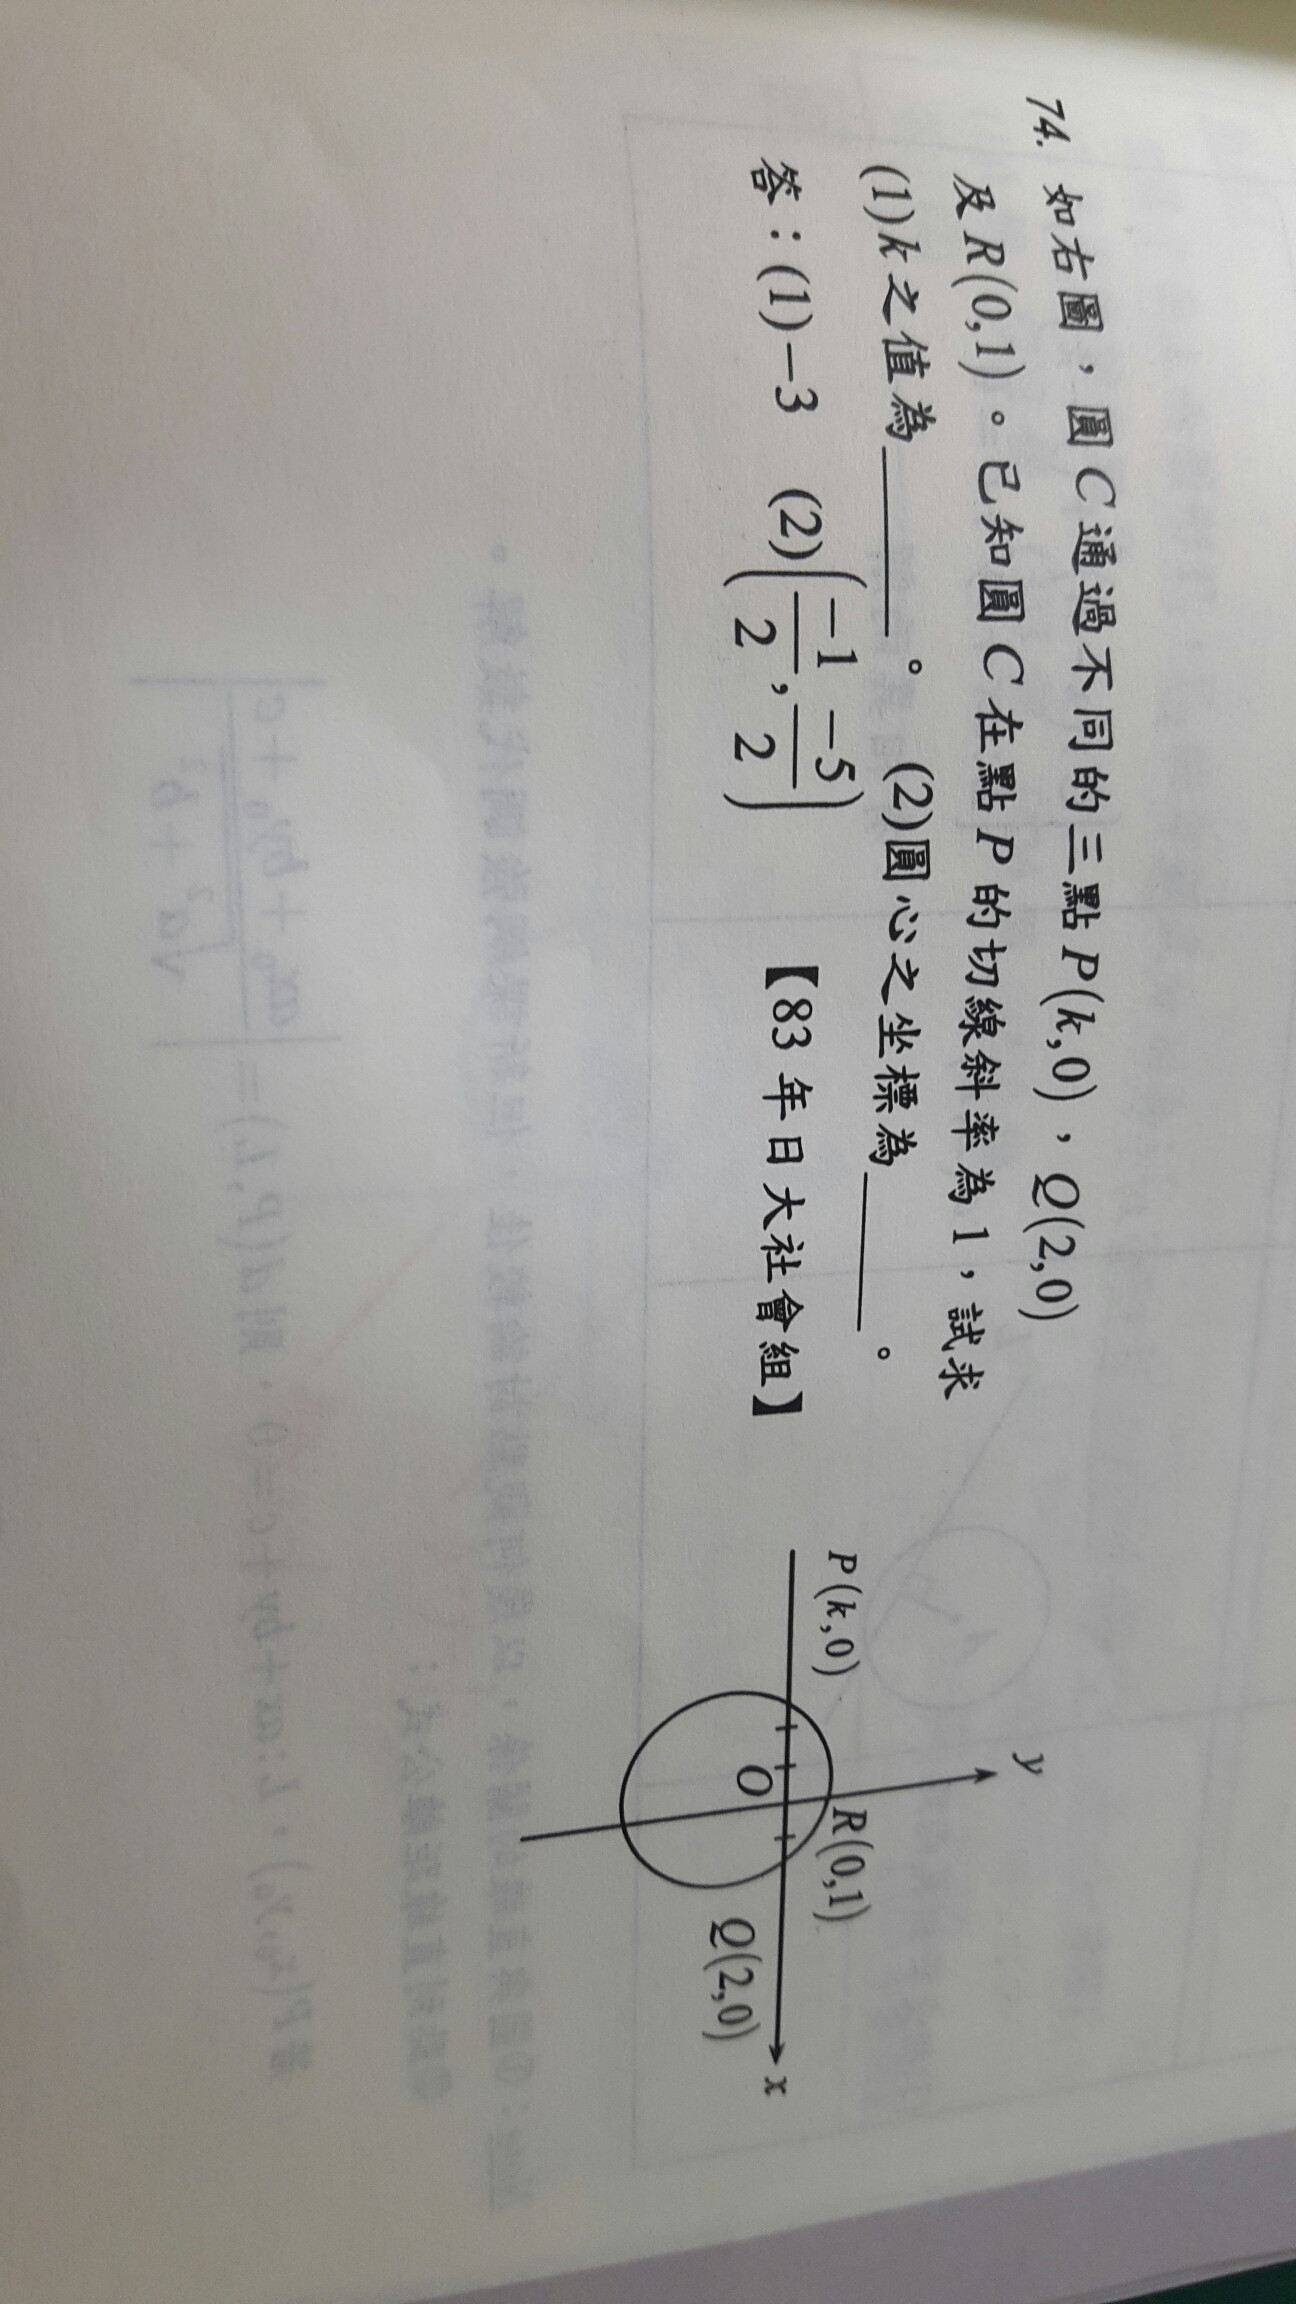 74. 如右圖，圓C通過不同的三點P(k,0)，Q(2,0)
及R(0,1)。已知圓C在點P的切線斜率為1，試求
(1)k之值為______。 (2)圓心之坐標為______。
答：(1)−3 (2)(−1/2, −5/2) 【83年日大社會組】
y
P(k,0)
R(0,1)
O
Q(2,0)
x